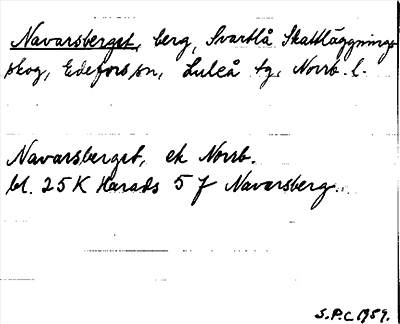 Navarsberget, berg, Svartlå Skattläggnings
skog, Edefors sn, Luleå tg, Norrb. l.
Navarsberget, ek Norrb.
bl. 25K Harads 5 f Navarsberg.
S.P.C 1959.